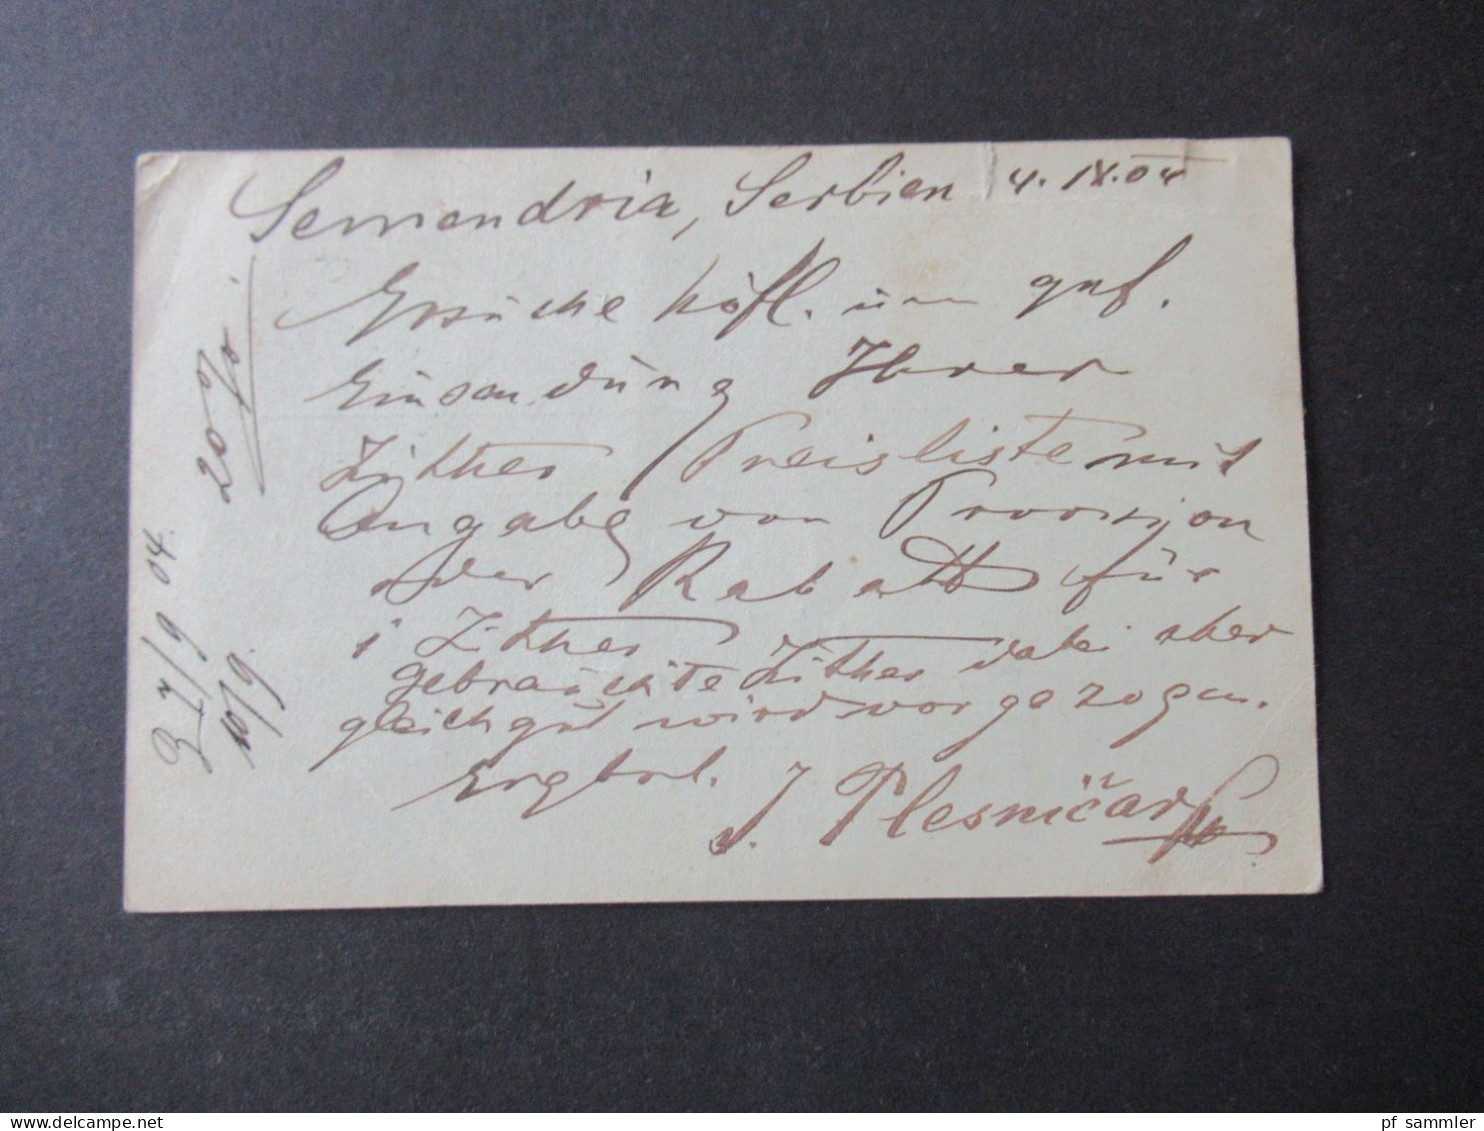 Semendria, Serbien 4.IX.04
Ersuche höfl. um gef.
Einsendung Ihrer
Zither Preisliste mit
Angabe von Provision
oder Rabatt für
1 Zither
Zither dabei aber
gebrauchte
gleich gut wird vorgezogen.
Ergbst.
J. Plesničar
20%
7/9 04.
10/9.
pf_sammler